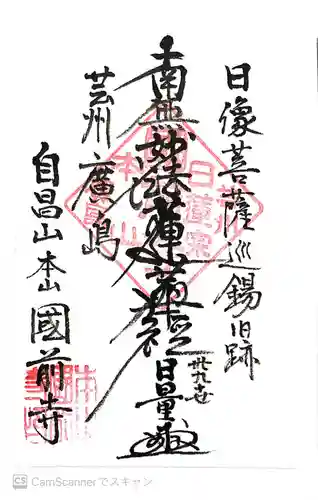 日像菩薩巡錫旧跡
南無妙法蓮華経
丗九世
日量
芸州廣島
自昌山本山國前寺
CamScannerでスキャン